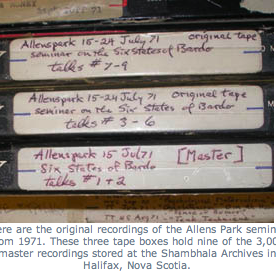 Allenspark 15-24 July 71 original tape
seminar on the Six States of Bardo
talks # 7-9
Allenspark 15-24 July 71 Original tape
seminar on the Six States of Bardo
talks # 3-6
Allenspark 15 July 71 [Master]
Six States of Bardo
talks # 1+2
ere are the original recordings of the Allens Park semin
om 1971. These three tape boxes hold nine of the 3,00
master recordings stored at the Shambhala Archives in
Halifax, Nova Scotia.